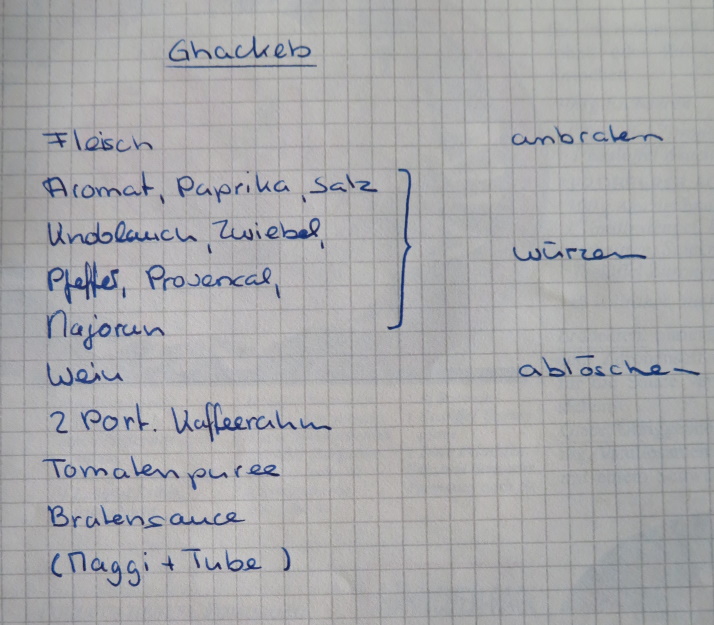 Ghackets
Fleisch anbraten
Aromat, Paprika, Salz
Knoblauch, Zwiebel,
würzen
Pfeffer, Provencal,
Majoran
Wein ablöschen
2 Port. Kaffeerahm
Tomatenpuree
Bratensauce
(Maggi + Tube)